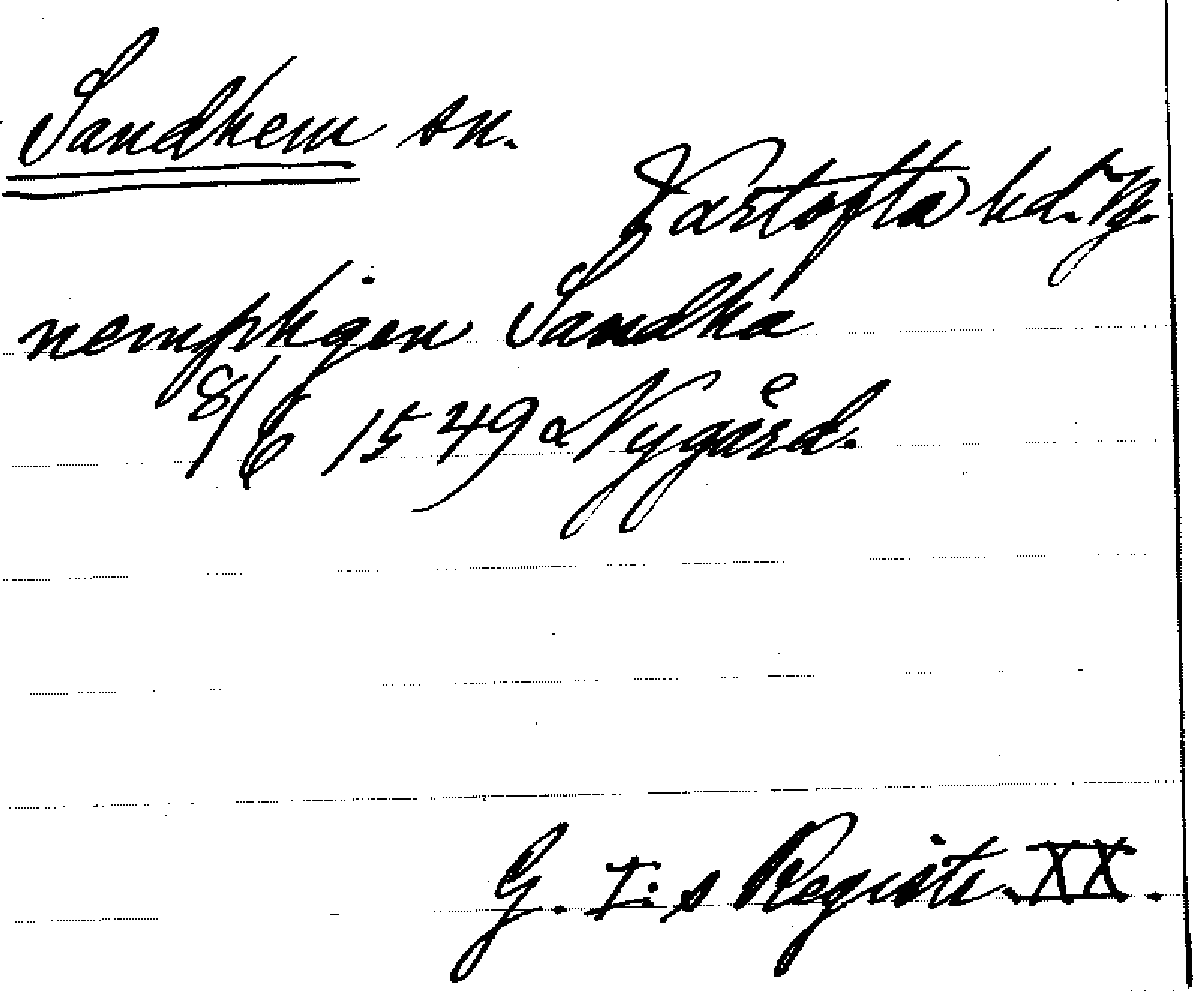 Sandhem sn.
Vartofta hd. Vg.
nempligen Sandha
8/6 1549 a Nygård.
G. I:s Registr. XX.